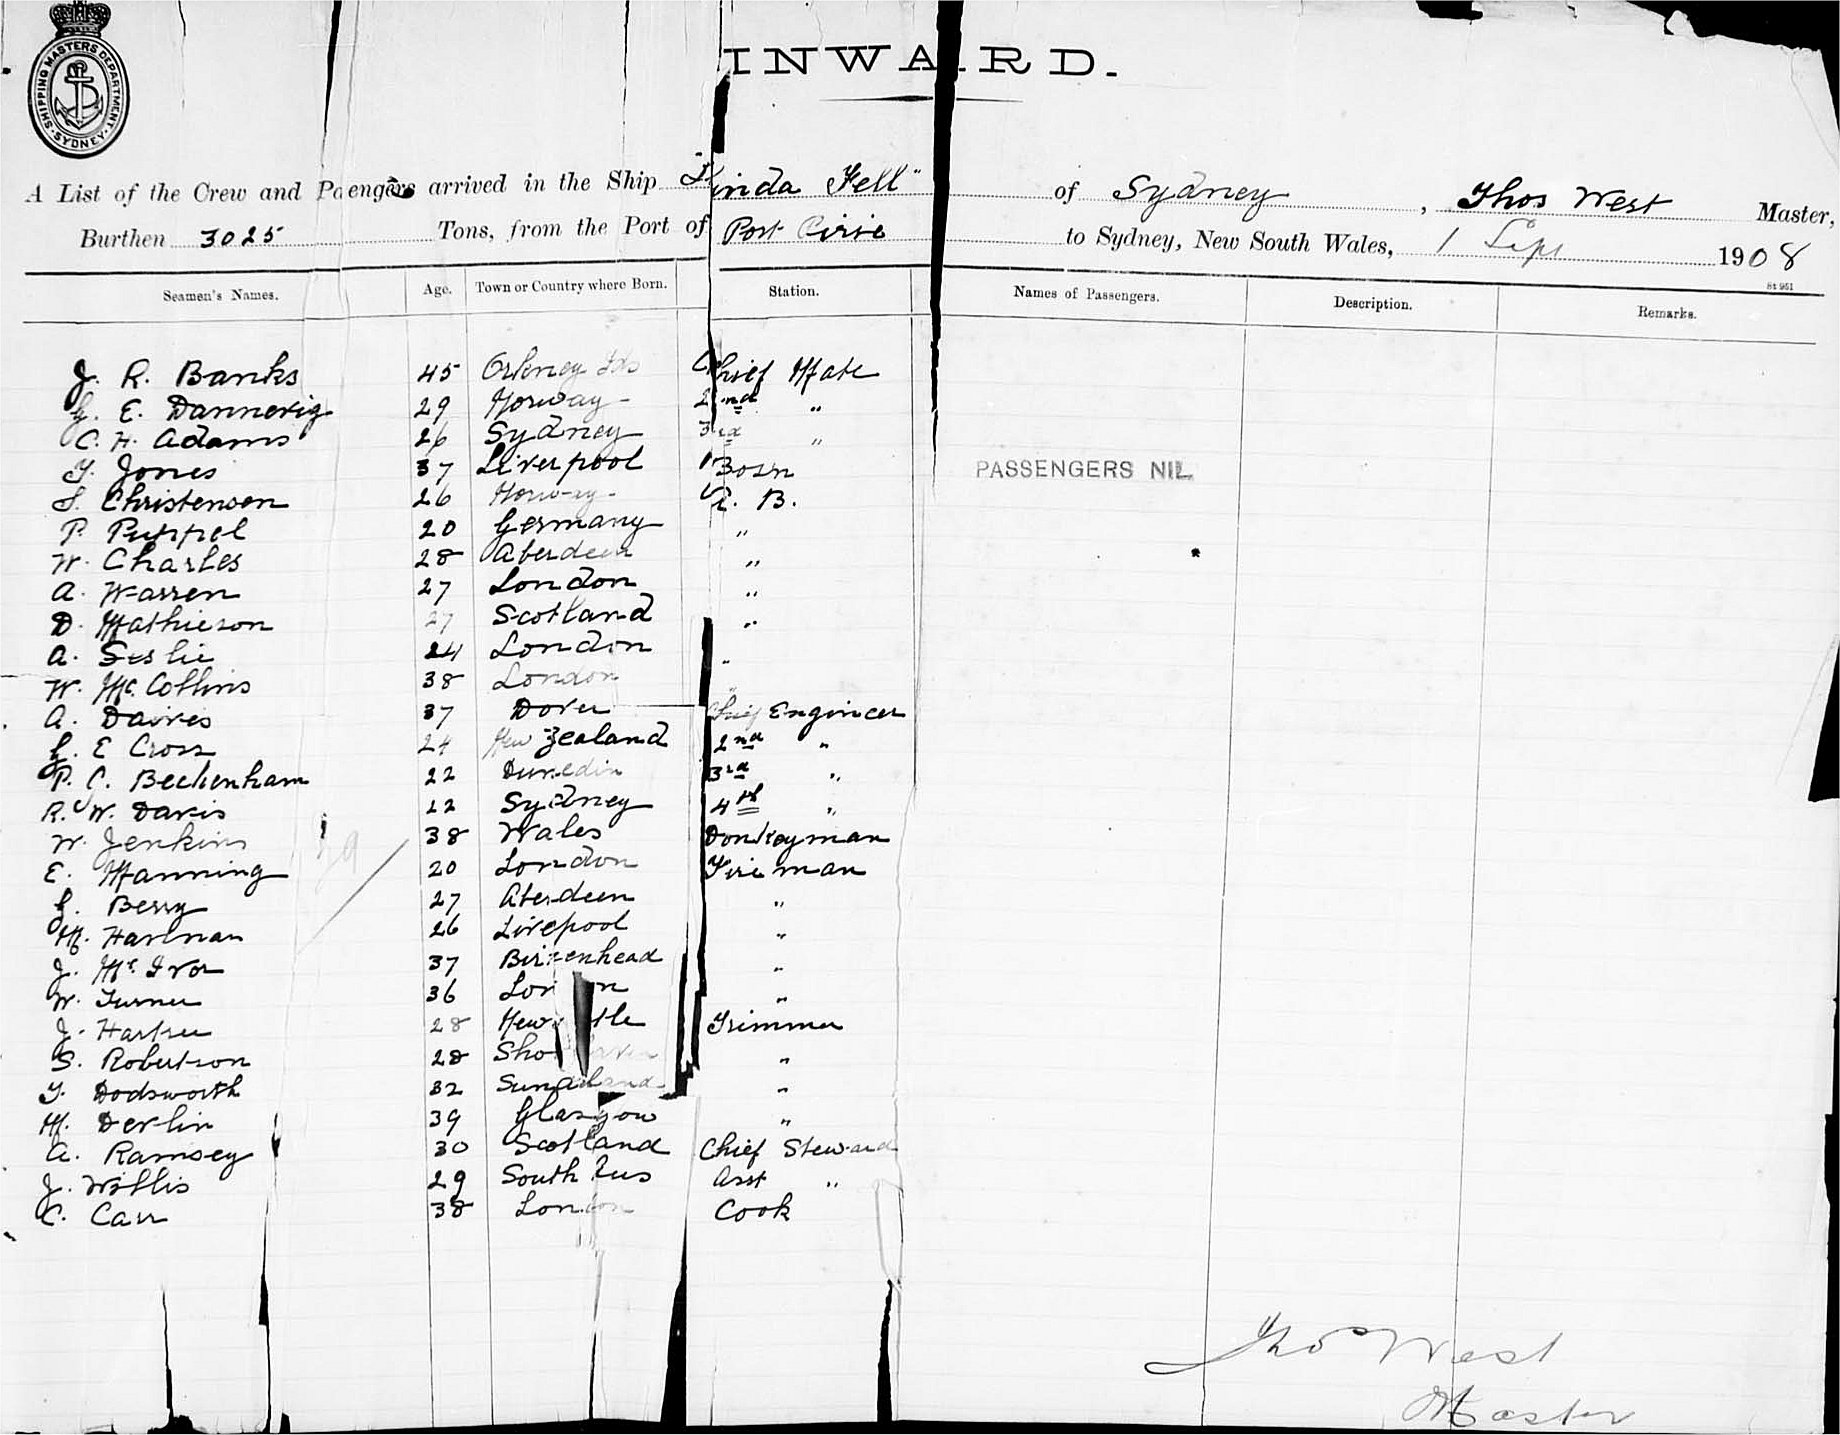 SHIPPING MASTERS DEPARTMENT SYDNEY
INWARD.
A List of the Crew and Pa engers arrived in the Ship "Linda Fell" of Sydney, Thos West Master,
Burthen 3025 Tons, from the Port of Port Pirie to Sydney, New South Wales, 1 Sept 1908
St 951
Seamen's Names. Age. Town or Country where Born. Station. Names of Passengers. Description. Remarks.
J. R. Banks 45 Orkney Ids Chief Mate
G. E. Dannevig 29 Norway - 2nd "
C. H. Adams 26 Sydney 3rd "
T. Jones 37 Liverpool Bosn
PASSENGERS NIL.
S. Christenson 26 Norway - A. B.
P. Puppel 20 Germany "
W. Charles 28 Aberdeen "
A. Warren 27 London "
D. Mathieson 27 Scotland "
A. Leslie 24 London "
W. Mc Collins 38 London "
A. Davies 37 Dover Chief Engineer
G. E Cross 24 New Zealand 2nd "
P. C. Beckenham 22 Dunedin 3rd "
R. W. Davis 22 Sydney 4th "
W. Jenkins 38 Wales Donkeyman
E. Manning 20 London Fireman
G. Berry 27 Aberdeen "
M. Hannan 26 Livepool "
J. Mc Ivor 37 Birkenhead "
W. Turner 36 London "
J. 28 Newcastle Trimmer
S. Robertson 28 "
T. Dodsworth 32 Sunderland "
M. Devlin 39 Glasgow "
A. Ramsey 30 Scotland Chief Steward
J. Willis 29 South Aus Asst "
C. Carr 38 London Cook
Thos West
Master